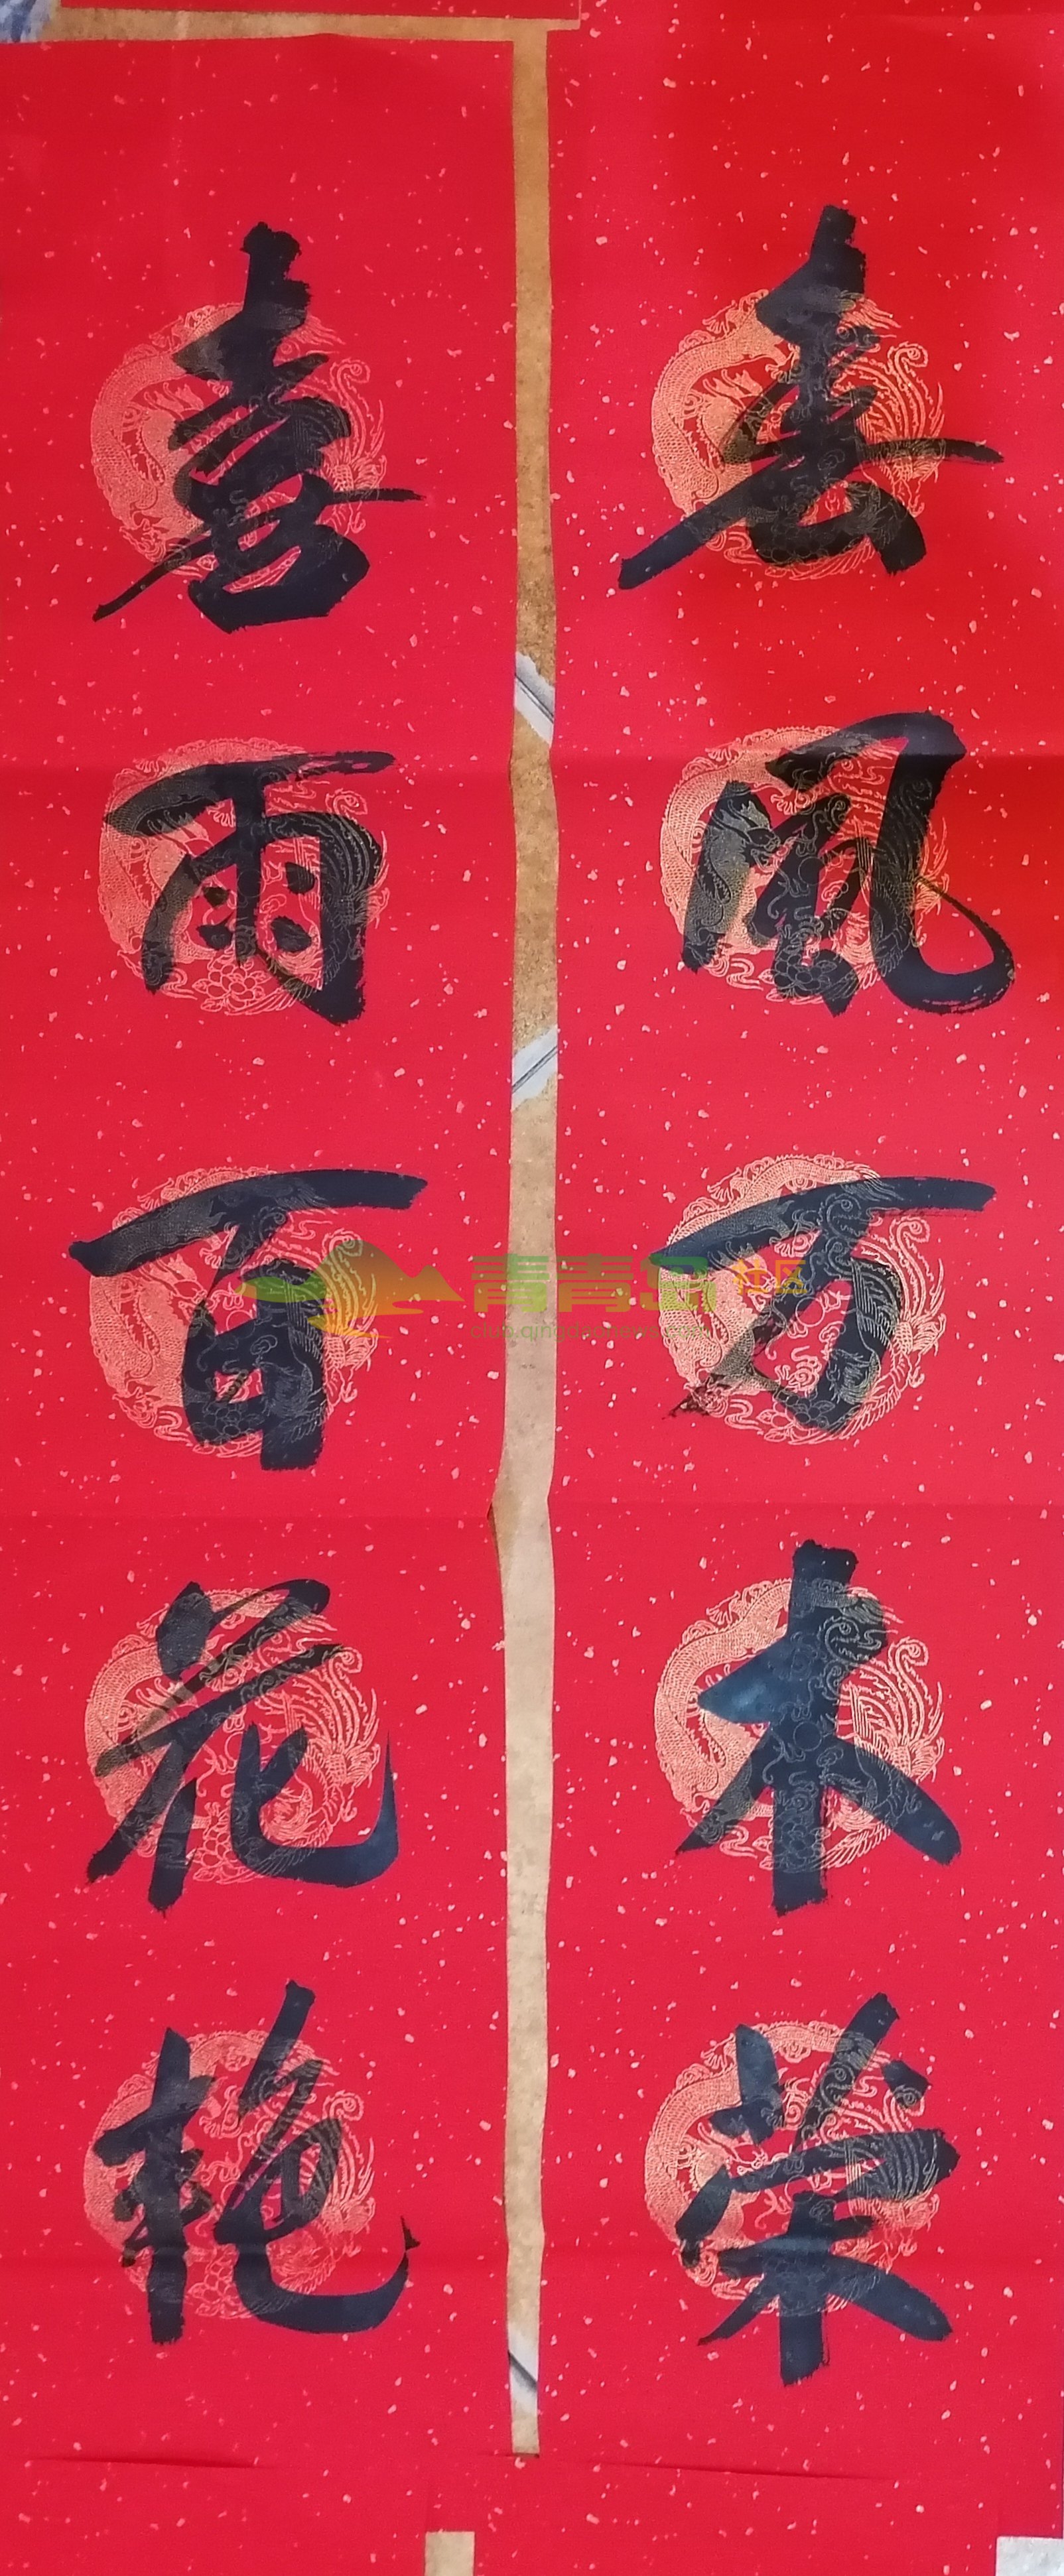 春风万木荣
喜雨百花艳
青青岛社区
club.qingdaonews.com